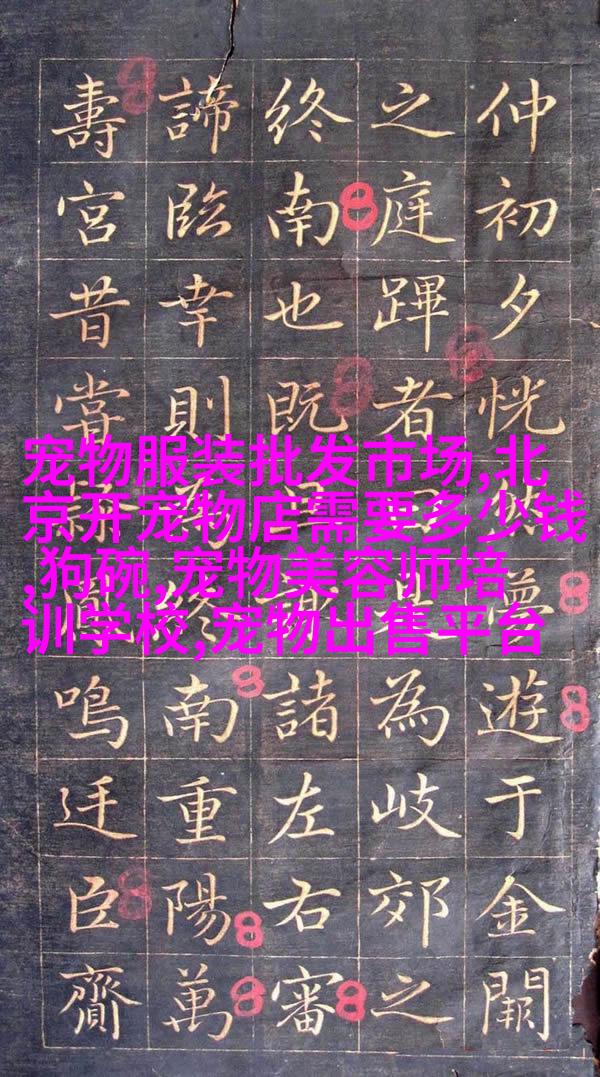 仲初夕恍夢遊于金闕
之庭蹕者是為岐郊之
終南也既諸左右審
諦臨幸則終南重陽萬
壽宮昔嘗鳴迋臣齎
宠物服装批发市场,北
京开宠物店需要多少钱
,狗碗,宠物美容师培
训学校,宠物出售平台